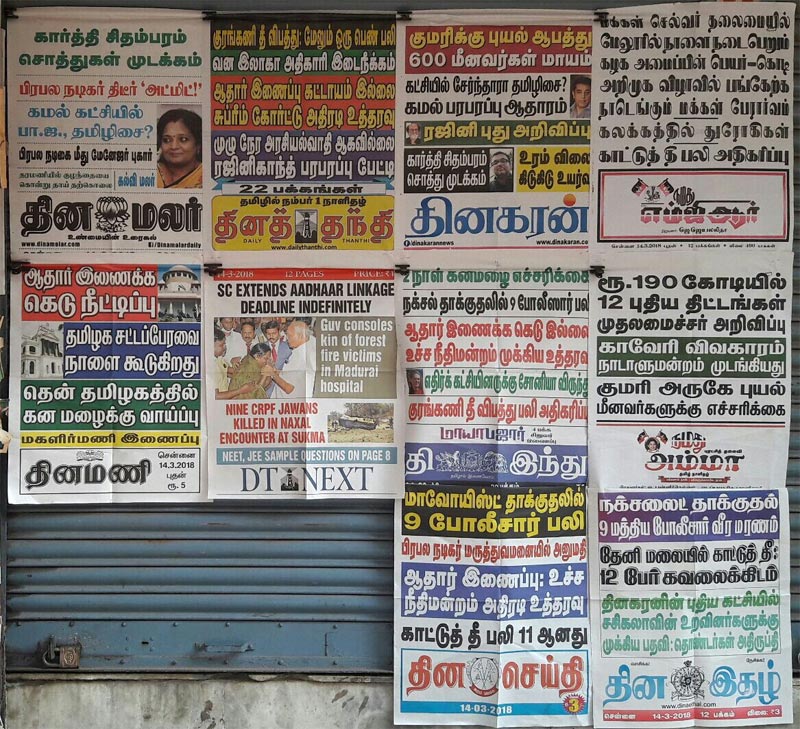 கார்த்தி சிதம்பரம்
சொத்துகள் முடக்கம்
பிரபல நடிகர் திடீர் 'அட்மிட்!'
கமல் கட்சியில்
பா.ஜ., தமிழிசை?
பிரபல நடிகை மீது மேனேஜர் புகார்
தரமணியில் குழந்தையை
கொன்று தாய் தற்கொலை
கல்வி மலர்
தின மலர்
உண்மையின் உரைகல்
www.dinamalar.com
/Dinamalardaily
குரங்கணி தீ விபத்து: மேலும் ஒரு பெண் பலி
வன இலாகா அதிகாரி இடைநீக்கம்
ஆதார் இணைப்பு கட்டாயம் இல்லை
சுப்ரீம் கோர்ட்டு அதிரடி உத்தரவு
முழு நேர அரசியல்வாதி ஆகவில்லை
ரஜினிகாந்த் பரபரப்பு பேட்டி
22 பக்கங்கள்
தமிழில் நம்பர் 1 நாளிதழ்
தினத் தந்தி
DAILY THANTHI
www.dailythanthi.com
குமரிக்கு புயல் ஆபத்து
600 மீனவர்கள் மாயம்
கட்சியில் சேர்ந்தாரா தமிழிசை?
கமல் பரபரப்பு ஆதாரம்
ரஜினி புது அறிவிப்பு
கார்த்தி சிதம்பரம்
சொத்து முடக்கம்
உரம் விலை
கிடுகிடு உயர்வு
தினகரன்
/dinakarannews
www.dinakaran.com
மக்கள் செல்வர் தலைமையில்
மேலூரில் நாளை நடைபெறும்
கழக அமைப்பின் பெயர்-கொடி
அறிமுக விழாவில் பங்கேற்க
நாடெங்கும் மக்கள் பேரார்வம்
கலக்கத்தில் துரோகிகள்
காட்டுத் தீ பலி அதிகரிப்பு
நமது
எம்ஜிஆர்
சென்னை 14.3.2018 புதன் • 12 பக்கங்கள்
ஆதார் இணைக்க
கெடு நீட்டிப்பு
தமிழக சட்டப்பேரவை
நாளை கூடுகிறது
தென் தமிழகத்தில்
கன மழைக்கு வாய்ப்பு
மகளிர்மணி இணைப்பு
தினமணி
சென்னை
14.3.2018
புதன்
ரூ. 5
14-3-2018 12 PAGES PRICE: ₹1
SC EXTENDS AADHAAR LINKAGE
DEADLINE INDEFINITELY
Guv consoles
kin of forest
fire victims
in Madurai
hospital
NINE CRPF JAWANS
KILLED IN NAXAL
ENCOUNTER AT SUKMA
NEET, JEE SAMPLE QUESTIONS ON PAGE 8
DT NEXT
நாள் கனமழை எச்சரிக்கை
நக்சல் தாக்குதலில் 9 போலீஸார் பலி
ஆதார் இணைக்க கெடு இல்லை
உச்ச நீதிமன்றம் முக்கிய உத்தரவு
எதிர்க் கட்சியினருக்கு சோனியா விருந்து
குரங்கணி தீ விபத்து பலி அதிகரிப்பு
மாயாபஜார்
4 பக்க
சிறுவர்
இணைப்பு
தி இந்து
ரூ.190 கோடியில்
12 புதிய திட்டங்கள்
முதலமைச்சர் அறிவிப்பு
காவேரி விவகாரம்
நாடாளுமன்றம் முடங்கியது
குமரி அருகே புயல்
மீனவர்களுக்கு எச்சரிக்கை
நமது
புரட்சித் தலைவி
அம்மா
தமிழ் நாளிதழ்
மாவோயிஸ்ட் தாக்குதலில்
9 போலீசார் பலி
பிரபல நடிகர் மருத்துவமனையில் அனுமதி
ஆதார் இணைப்பு: உச்ச
நீதிமன்றம் அதிரடி உத்தரவு
காட்டுத் தீ பலி 11 ஆனது
தின செய்தி
14-03-2018
₹3
நக்சலைட் தாக்குதல்
9 மத்திய போலீசார் வீர மரணம்
தேனி மலையில் காட்டுத் தீ:
12 பேர் கவலைக்கிடம்
தினகரனின் புதிய கட்சியில்
சசிகலாவின் உறவினர்களுக்கு
முக்கிய பதவி: தொண்டர்கள் அதிருப்தி
தின இதழ்
www.dinaethal.com
சென்னை 14-3-2018 12 பக்கம் விலை: ₹3